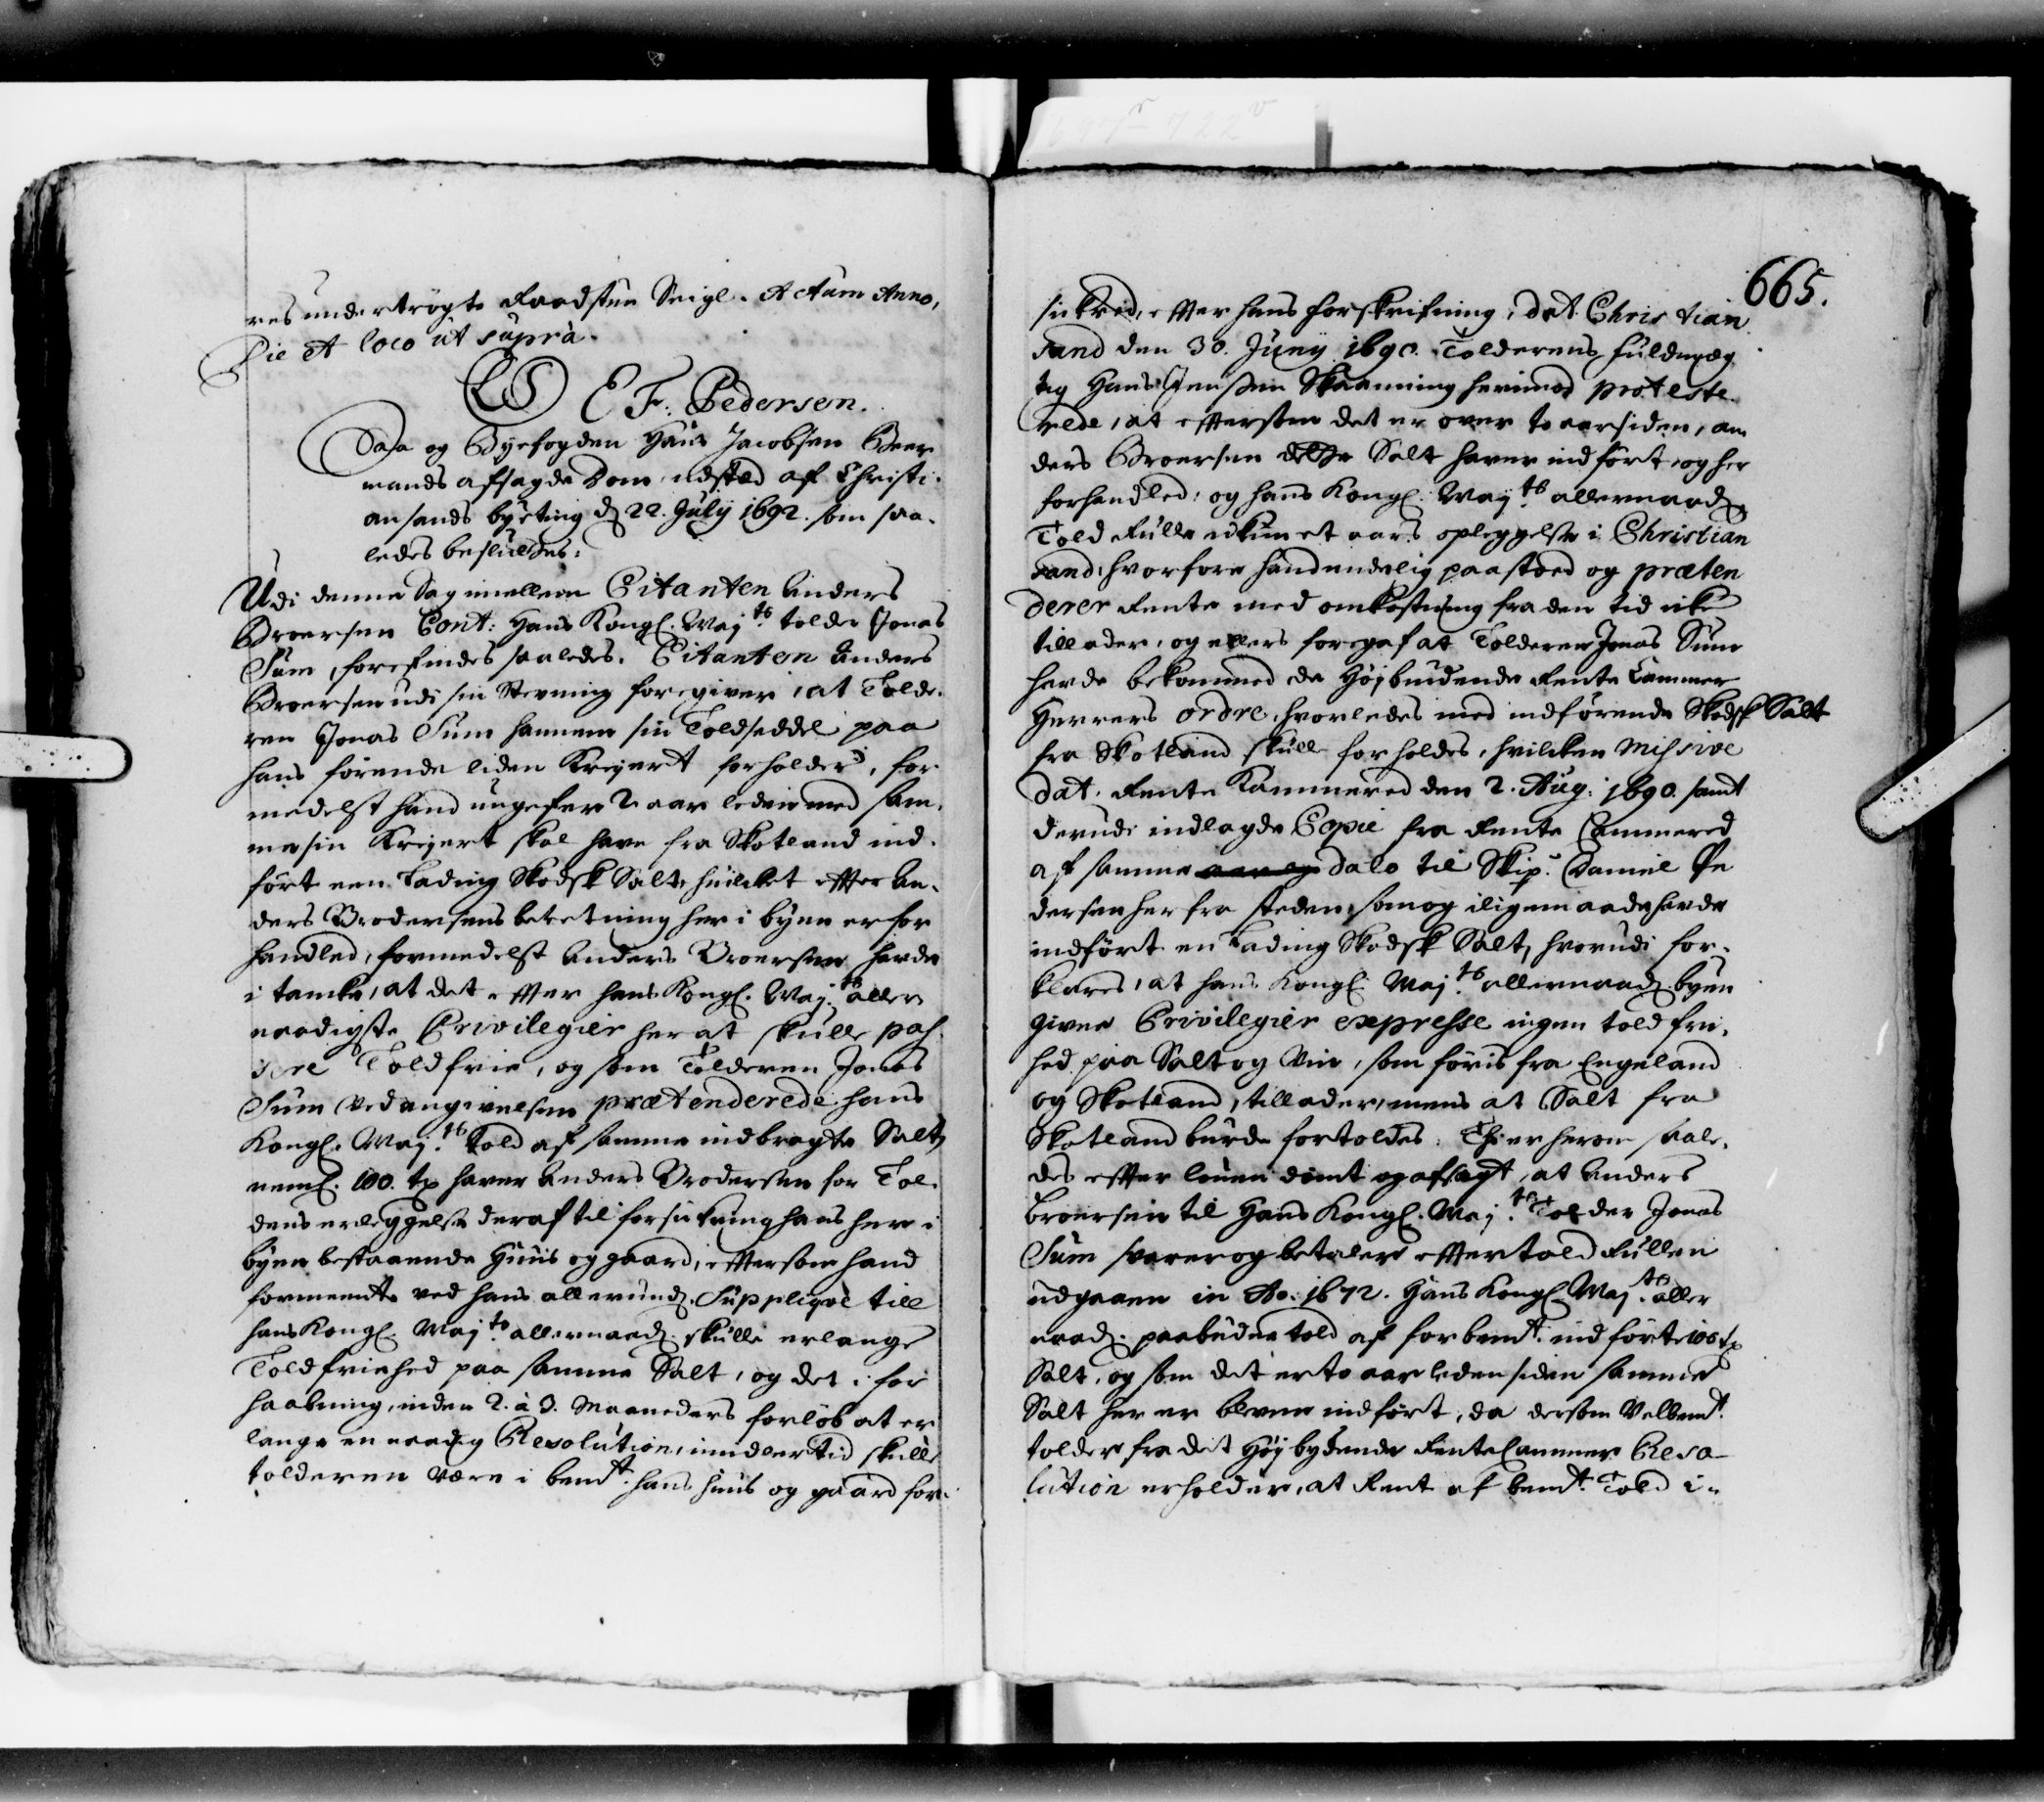 res undertrögte Raadstue Seigl. Actum Anno,
Die et loco ut supra.
LS E F: Pedersen.
Saa og Byefogden Hans Jacobsen Beer
mands afsagde Dom, udsted af Christi-
ansands byeting d 22. July 1692. som saa-
ledes besluttes:
Udi denne Sag imellem Citanten Anders
Broersen Cont: Hans Kongl. Maj.ts tolder Jonas
Sum, forefindes saaledes. Citanten Anders
Broersen udi sin Stevning foregiver, at Tolde-
ren Jonas Sum hannem sin Toldseddel paa
hans förende liden Krejert forholder, for-
medelst hand ungefer 2 aar leden med sam-
me sin Krejert skal have fra Skotland ind-
fört een Lading Skodsk Salt, huilcket effter An-
ders Brodersens beretning her i byen er for-
handled, formedelst Anders Broersen havde
i tancke, at det effter hans Kongl. Maj.ts aller
naadigste Privilegier her at skulle pas-
sere Toldfrie, og som Tolderen Jonas
Sum ved angivelsen prætenderede hans
Kongl. Maj.ts Told af samme indbragte Salt,
neml. 100. tr haver Anders Brodersen for Tol-
dens erleggelse deraf til forsickring hans her i
byen bestaaende Huus og gaard, effersom hand
formeente ved hans allerund. Suppliqve till
hans Kongl. Maj.ts allernaad. skulle erlange
Toldfriehed paa samme Salt, og det i for
haabning, inden 2. à 3. Maaneders forlöb at er
lange en naadig Resolution, imidlertid skulle
tolderen være i bemt. hans huus og gaard for-
665.
sickred, effter hans forskrifning, dat. Christian
sand den 30. Juny 1690. Tolderens fuldmæg
tig Hans Jensen Skaanning herimod proteste-
rede, at effersom det er over to aar siden, An
ders Broersen dette Salt haver indfört, og her
forhandled, og hans Kongl. May.ts allernaad.
Told Rulle ickun et aars opleggelse i Christian
sand, hvorfore hand endelig paastoed og præten
derer Rente med omkostning fra den tid icke
tillader, og ellers foregaf at Tolderen Jonas Sum
havde bekommed de Höjbudende Rente Cammer
Herrers ordre, hvorledes med indförende Skodsk Salt
fra Skotland skulle forholdes, hvilcken Missive
dat. Rente Kammered den 2. Aug: 1690. samt
derudi indlagde Copie fra Rente Cammered
af samme dato til Skip. Daniel Pe
dersen her fra steden, som og iligemaade havde
indfört en Lading Skodsk Salt, hvorudi for-
klares, at hans Kongl. Maj.ts allernaad. byen
givne Privilegier expresse ingen told fri-
hed paa Salt og Viin, som föris fra Engeland
og Skotland, tillader, mens at Salt fra
Skotland burde fortoldes. Thi er herom saale-
des effter loven dömt og afsagt, at Anders
Broersen til Hans Kongl. Maj.ts Tolder Jonas
Sum svarer og betaler effter told Rullen
udgaaen in Ao. 1672. Hans Kongl. Maj.ts aller
naad. paabudne told af forbemt. indförte 100 tr
Salt, og som det er to aar leden siden samme
Salt her er bleven indfört, da dersom Velbemt.
tolder fra det Höjbydende RenteCammer Reso-
lution erholder, at Rent af bemt. Told i-